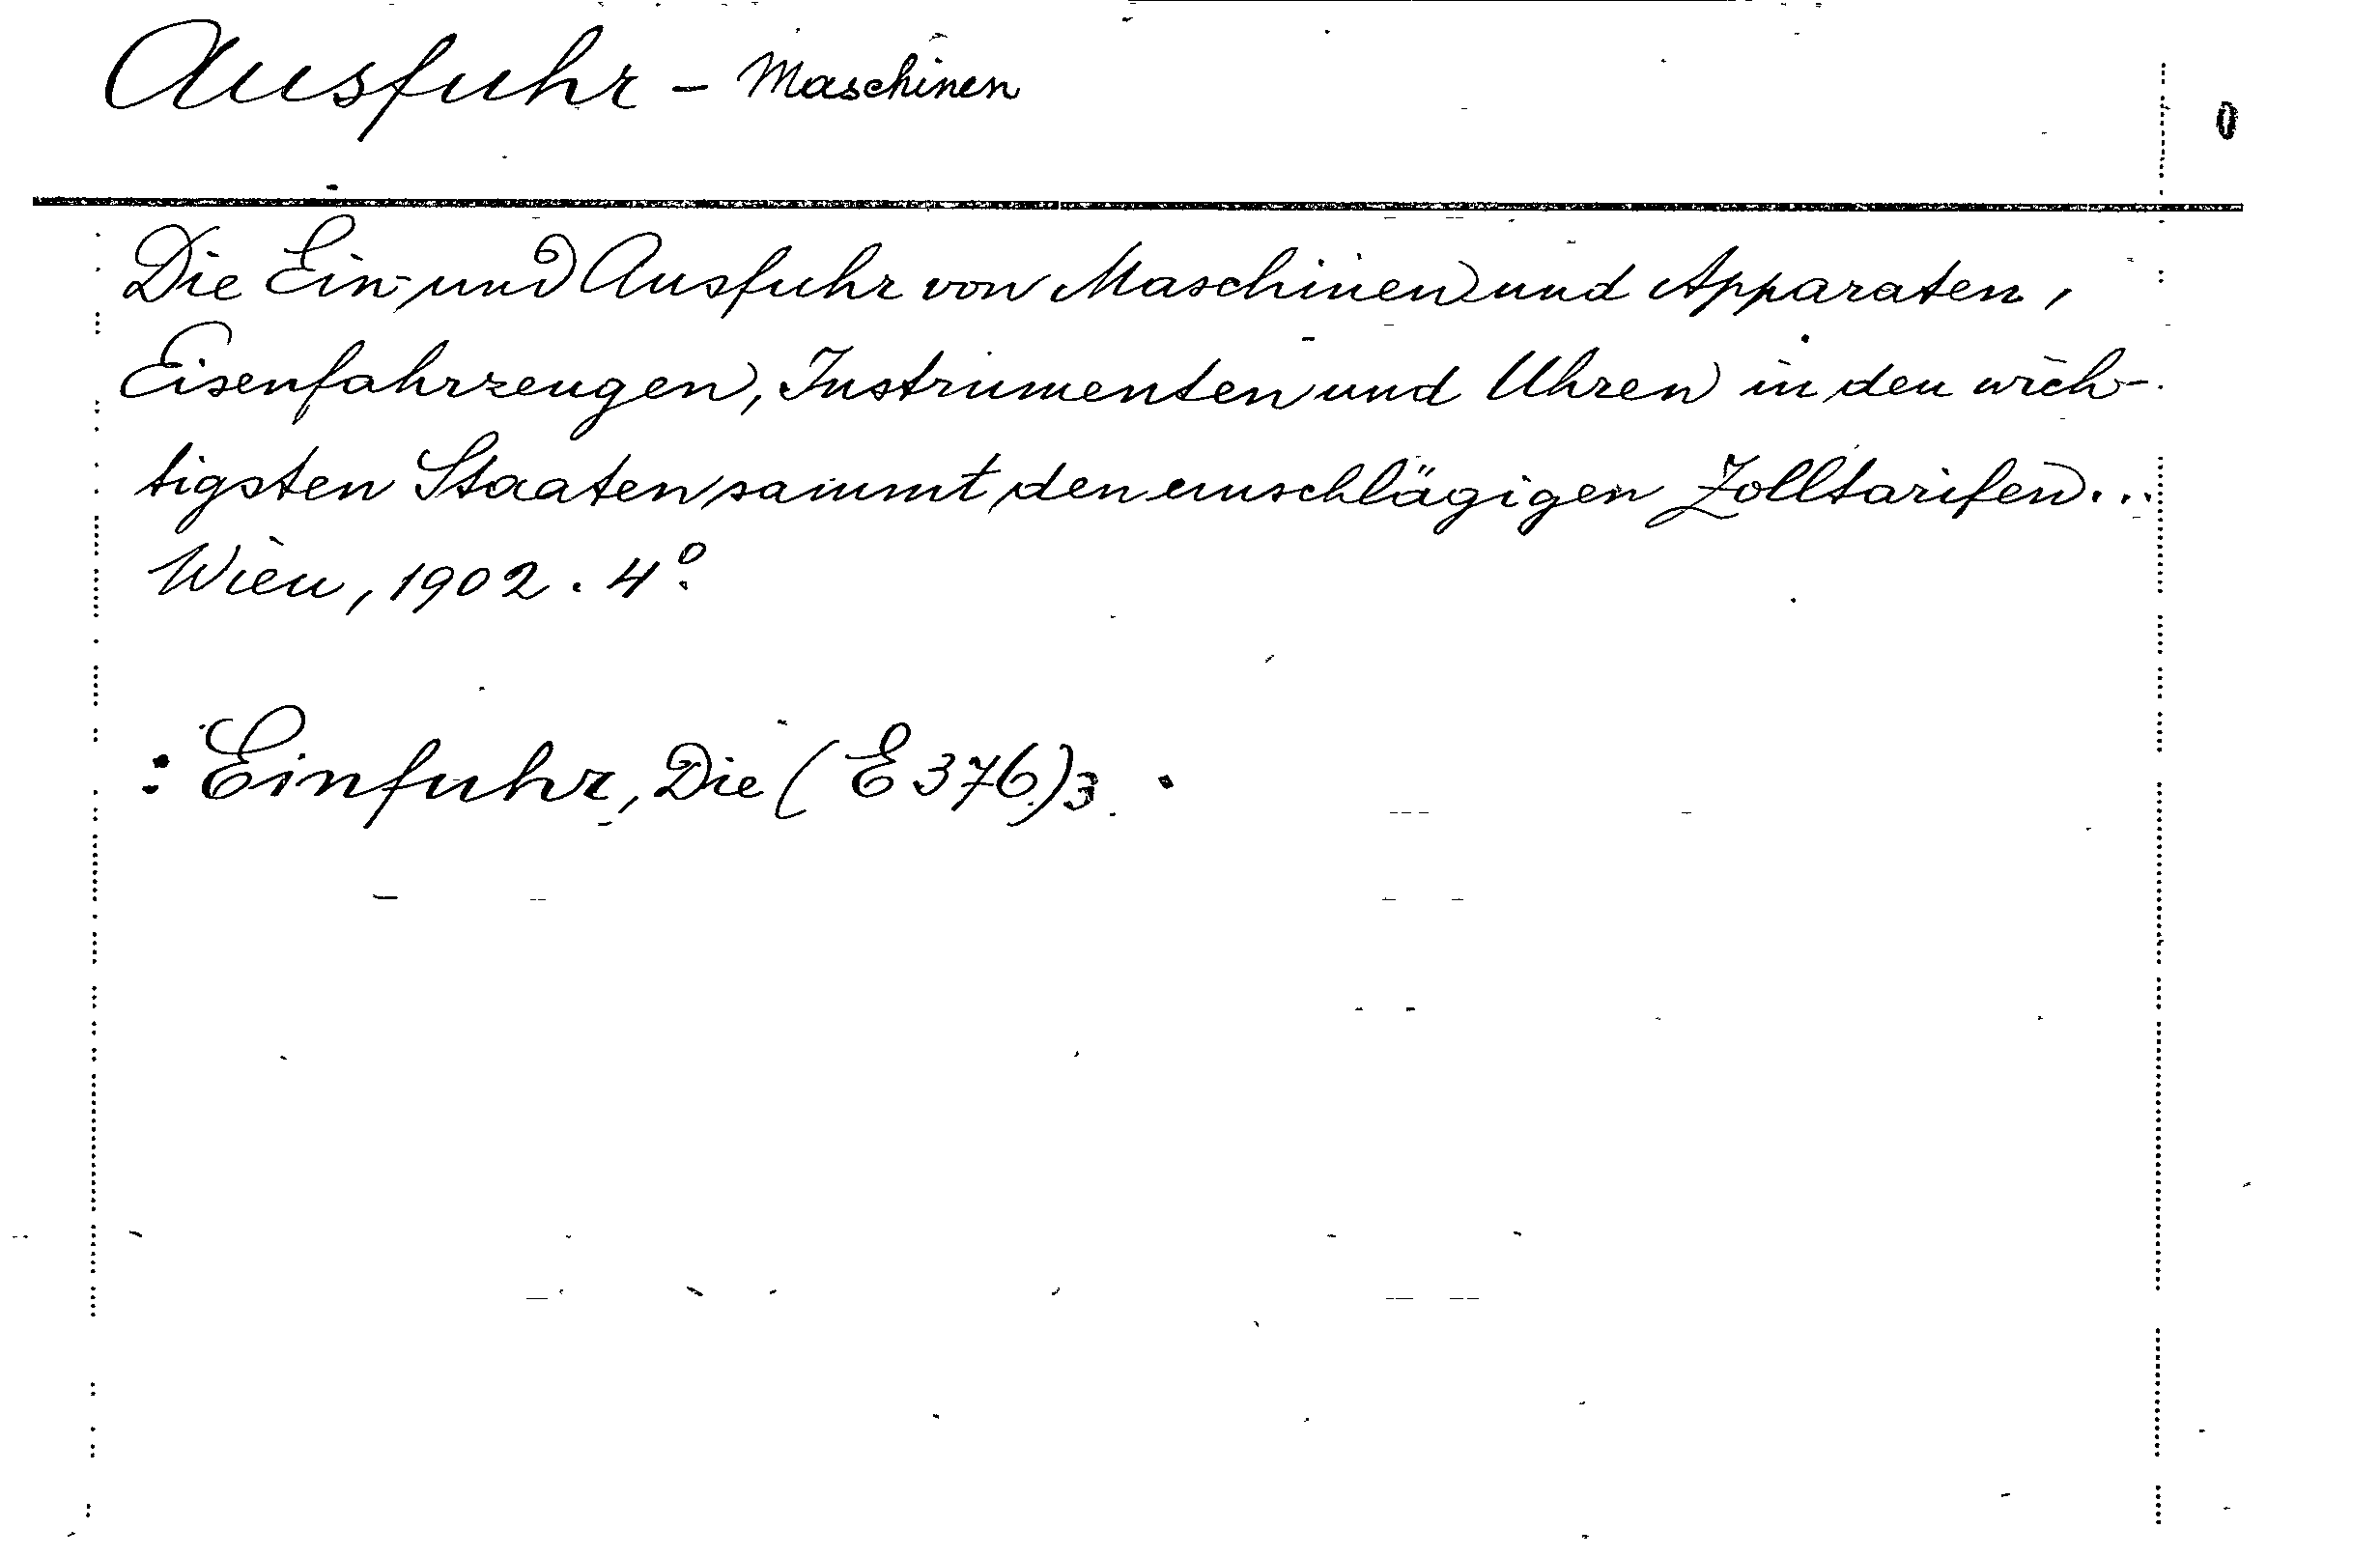 Ausfuhr - Maschinen
0
Die Ein- und Ausfuhr von Maschinen und Apparaten,
Eisenfahrzeugen, Instrumenten und Uhren in den wich-
tigsten Staaten sammt den einschlägigen Zolltarifen...
Wien, 1902. 4°.
: Einfuhr, Die (E 376)3.